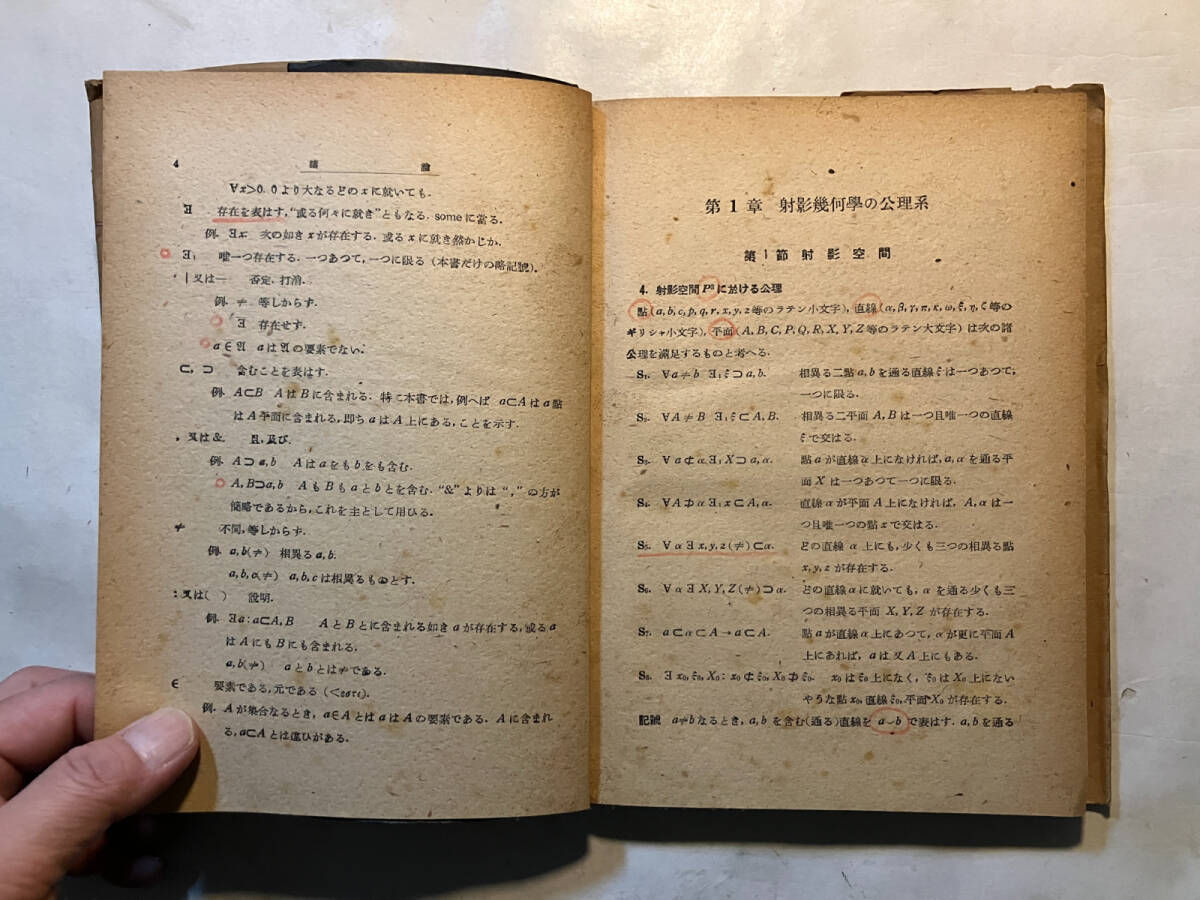 4 緒論
∀x>0. 0より大なるどのxに就いても.
∃ 存在を表はす,“或る何々に就き”ともなる. someに當る.
例. ∃x: 次の如きxが存在する. 或るxに就き然かじか.
∃₁ 唯一つ存在する. 一つあつて, 一つに限る (本書だけの略記號).
|又は— 否定. 打消.
例. ≠ 等しからず.
存在せず.
aはの要素でない.
⊂, ⊃ 含むことを表はす.
例. A⊂B AはBに含まれる. 特に本書では, 例へば a⊂A は a 點
は A 平面に含まれる, 即ち a は A 上にある, ことを示す.
, 又は &. 且, 及び.
例. A⊃a,b A は a をも b をも含む.
A,B⊃a,b A も B も a と b とを含む. “&” よりは “,” の方が
簡略であるから, これを主として用ひる.
≠ 不同, 等しからず.
例. a,b(≠) 相異る a,b.
a,b,c(≠) a,b,c は相異るものとす.
: 又は( ) 說明.
例. ∃a: a⊂A,B A と B とに含まれる如き a が存在する, 或る a
は A にも B にも含まれる.
a,b(≠) a と b とは≠である.
∈ 要素である, 元である
例. A が集合なるとき, a∈A とは a は A の要素である. A に含まれ
る, a⊂A とは違ひがある.
第1章 射影幾何學の公理系
第1節 射影空間
4. 射影空間 P³ に於ける公理
點(a,b,c,p,q,r,x,y,z等のラテン小文字), 直線(α,β,γ,π,κ,ω,ξ,η,ζ等の
ギリシャ小文字), 平面(A,B,C,P,Q,R,X,Y,Z等のラテン大文字) は次の諸
公理を滿足するものと考へる.
S₁. ∀a≠b ∃₁ξ⊃a,b. 相異る二點 a,b を通る直線 ξ は一つあつて,
一つに限る.
S₂. ∀A≠B ∃₁ξ⊂A,B. 相異る二平面 A,B は一つ且唯一つの直線
ξ で交はる.
S₃. ∀a⊄α ∃₁X⊃a,α. 點 a が直線 α 上になければ, a,α を通る平
面 X は一つあつて一つに限る.
S₄. ∀A⊅α ∃₁x⊂A,α. 直線 α が平面 A 上になければ, A,α は一
つ且唯一つの點 x で交はる.
S₅. ∀α∃x,y,z(≠)⊂α. どの直線 α 上にも, 少くも三つの相異る點
x,y,z が存在する.
S₆. ∀α∃X,Y,Z(≠)⊃α. どの直線 α に就いても, α を通る少くも三
つの相異る平面 X,Y,Z が存在する.
S₇. a⊂α⊂A→a⊂A. 點 a が直線 α 上にあつて, α が更に平面 A
上にあれば, a は又 A 上にもある.
S₈. ∃x₀,ξ₀,X₀: x₀⊄ξ₀, X₀⊅ξ₀. x₀ は ξ₀ 上になく, ξ₀ は X₀ 上にない
やうな點 x₀, 直線 ξ₀, 平面 X₀ が存在する.
記號 a≠b なるとき, a,b を含む(通る)直線を a⌣b で表はす. a,b を通る